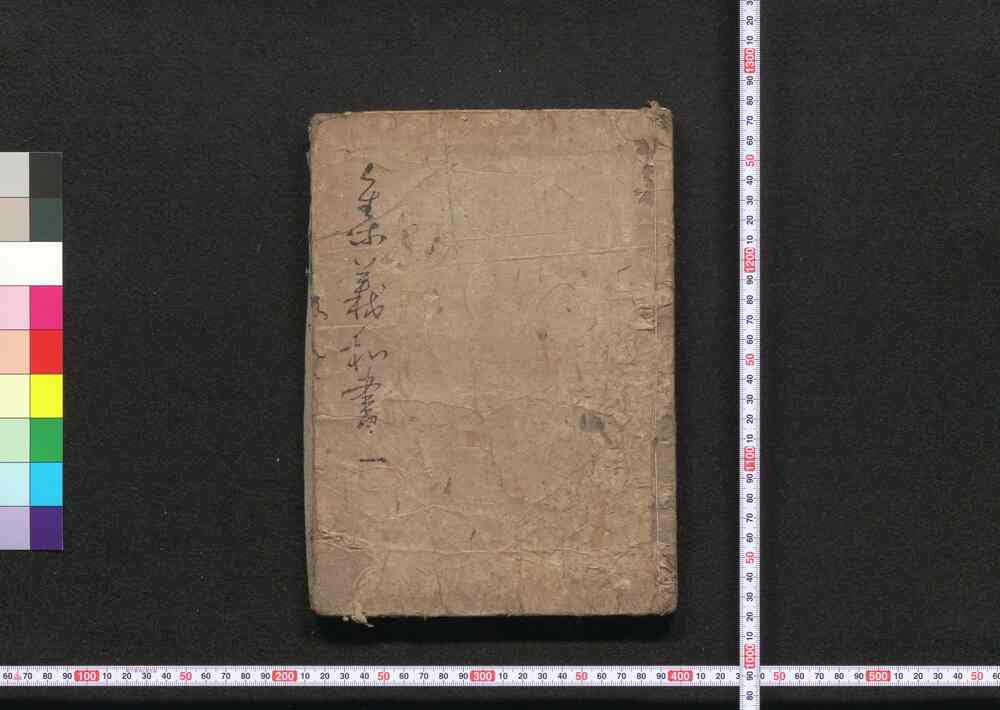 集義和書 一
20 10 1300 90 80 70 60 50 40 30 20 10 1200 90 80 70 60 50 40 30 20 10 1100 90 80 70 60 50 40 30 20 10 1000 90 80
60 70 80 90 100 10 20 30 40 50 60 70 80 90 200 10 20 30 40 50 60 70 80 90 300 10 20 30 40 50 60 70 80 90 400 10 20 50 60 70 80 90 500 10 20 30 40 50